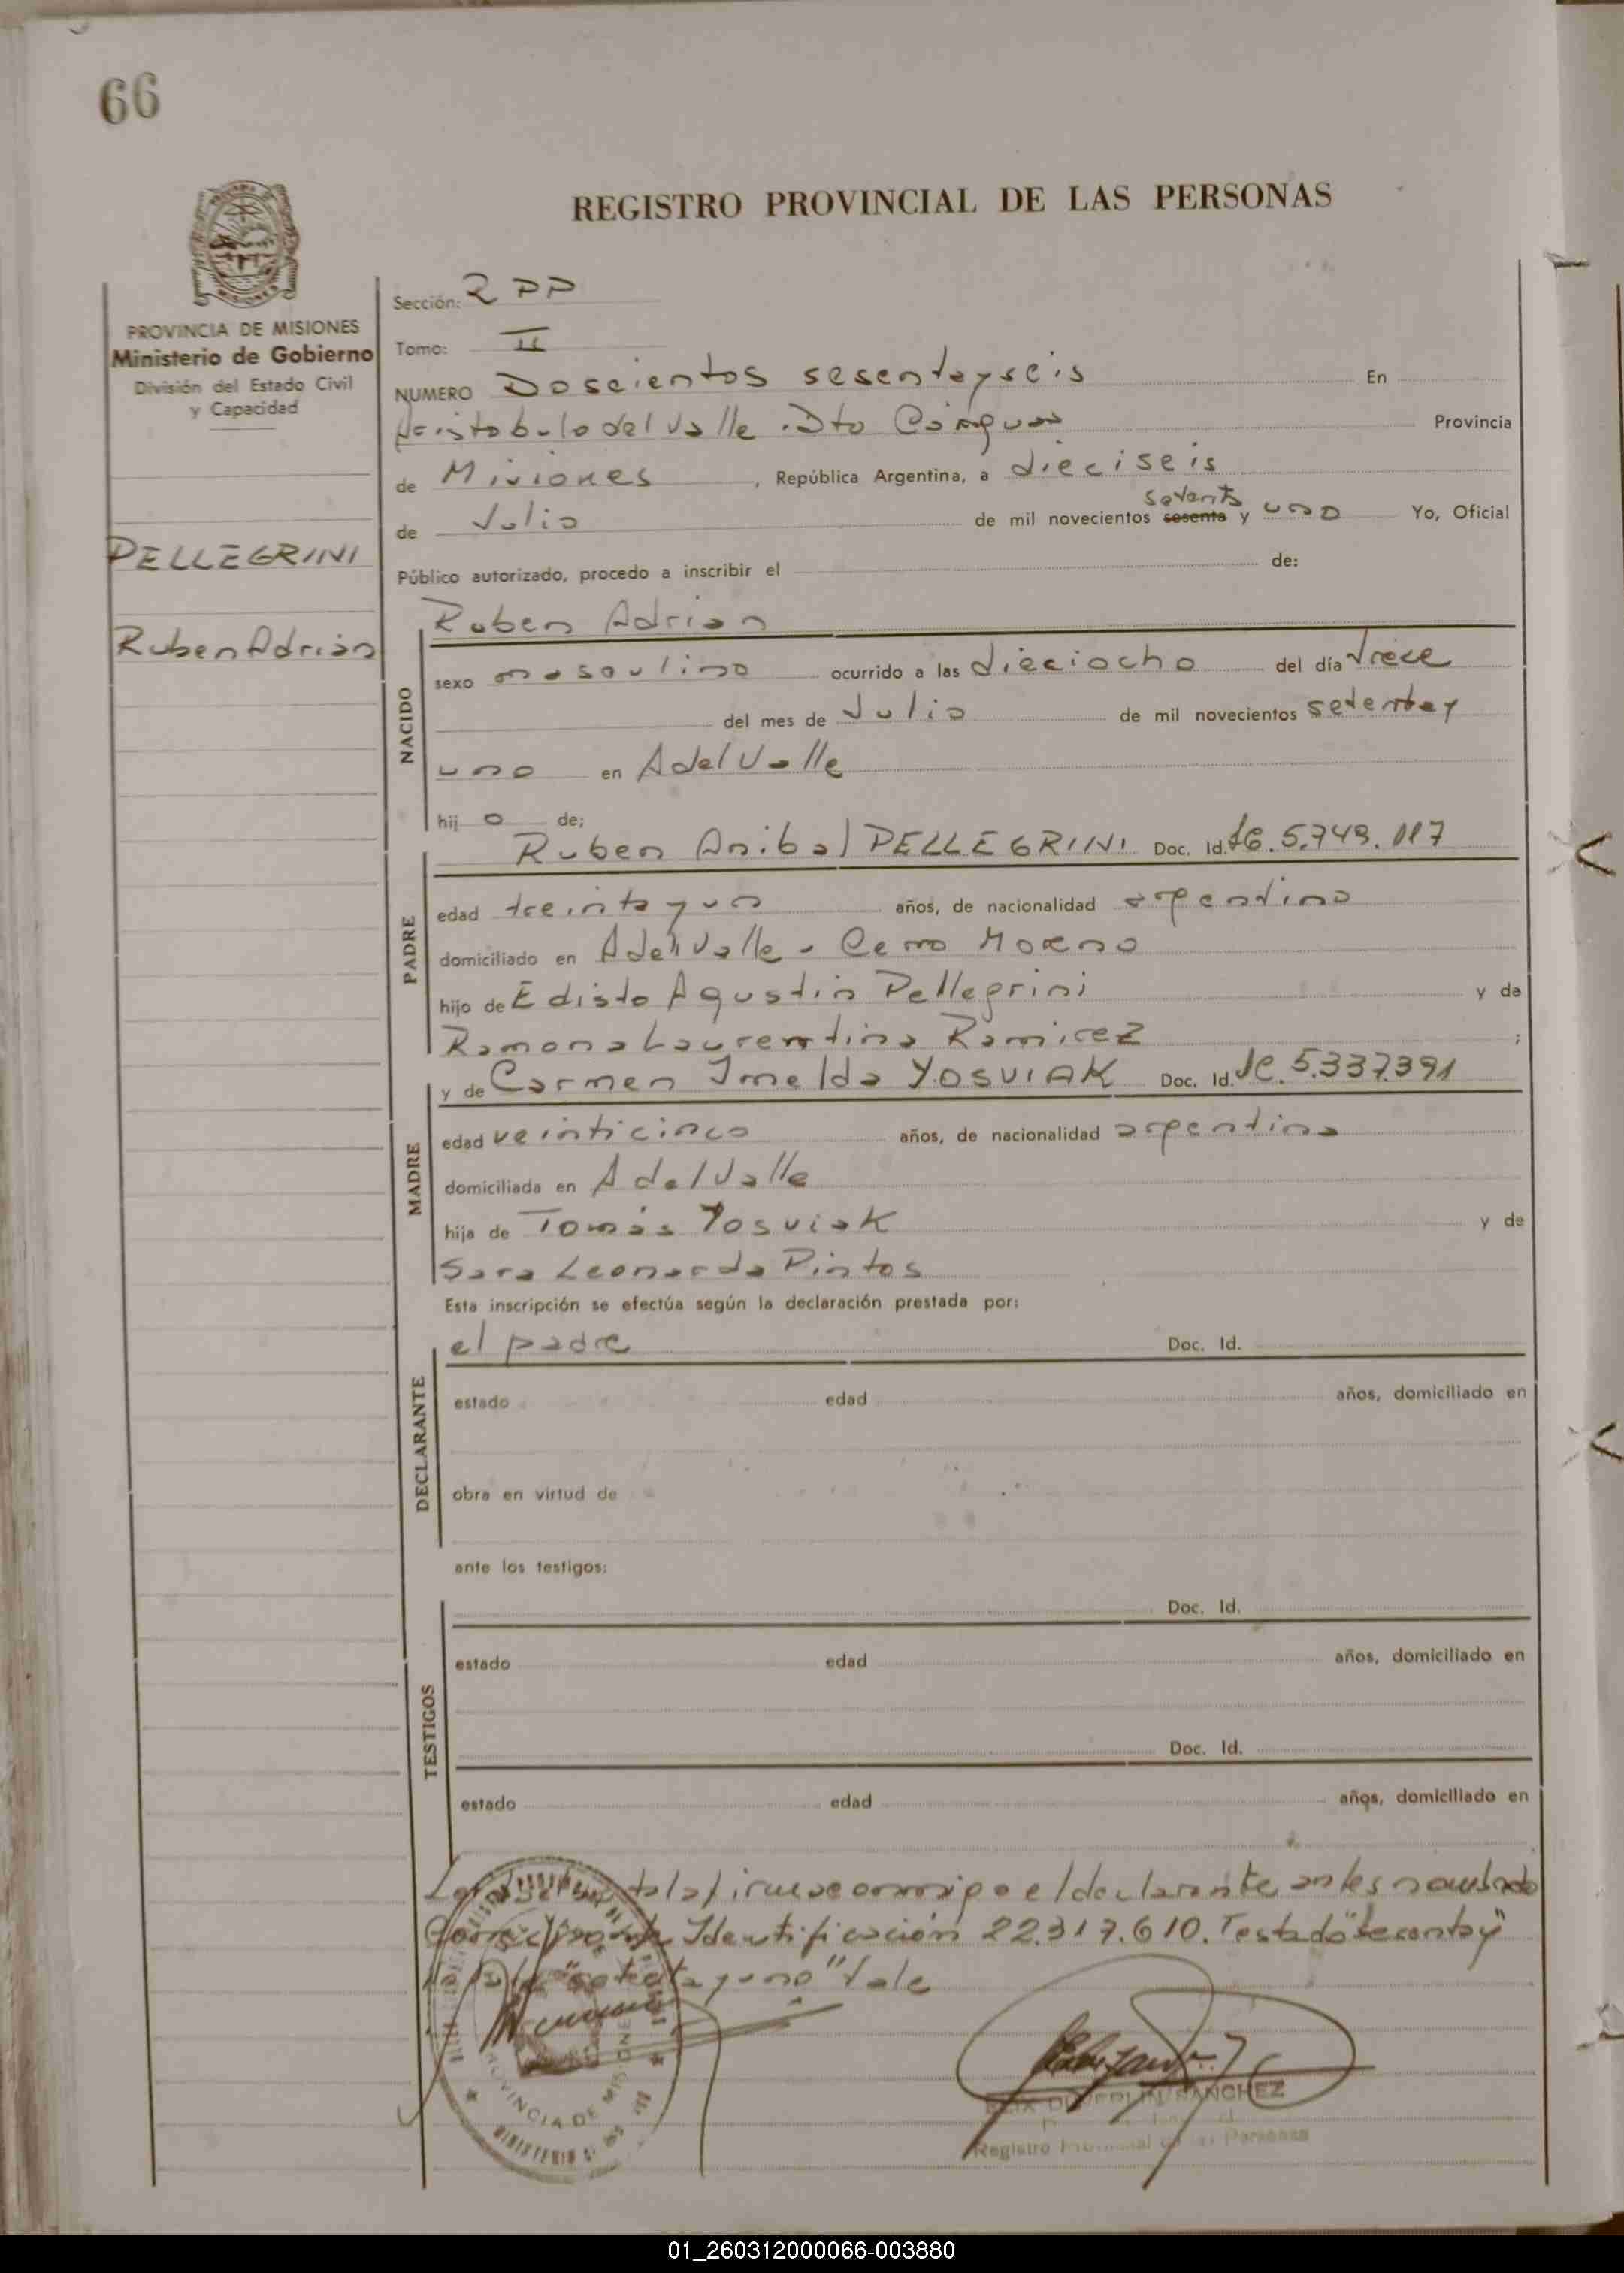 66
REGISTRO PROVINCIAL DE LAS PERSONAS
PROVINCIA DE MISIONES
Ministerio de Gobierno
División del Estado Civil
y Capacidad
PELLEGRINI
Ruben Adrián
Sección: RPP
Tomo: II
NUMERO Doscientos sesentayseis En
Aristobulo del Valle .Dto Cainguas Provincia
de Misiones , República Argentina, a dieciseis
setenta
de Julio de mil novecientos sesenta y uno Yo, Oficial
Público autorizado, procedo a inscribir el de:
Ruben Adrian
NACIDO
sexo masculino ocurrido a las dieciocho del día trece
del mes de Julio de mil novecientos setentay
uno en A del Valle
hij o de;
PADRE
Ruben Anibal PELLEGRINI Doc. Id. 5.749.117
edad treinta y un años, de nacionalidad argentino
domiciliado en A del Valle - Cerro Moreno
hijo de Edisto Agustin Pellegrini y de
Ramona Laurentina Ramirez ;
MADRE
y de Carmen Imelda YOSVIAK Doc. Id. 5.337.391
edad veinticinco años, de nacionalidad argentina
domiciliada en A del Valle
hija de Tomás Yosviak y de
Sara Leonarda Pintos
Esta inscripción se efectúa según la declaración prestada por:
DECLARANTE
el padre Doc. Id.
estado edad años, domiciliado en
obra en virtud de
ante los testigos:
TESTIGOS
Doc. Id.
estado edad años, domiciliado en
Doc. Id.
estado edad años, domiciliado en
el declarante antes nombrado
Identificación 22.317.610. Testado "sesentay"
"setentayuno" Vale
PROVINCIA DE MISIONES
MINISTERIO
SANCHEZ
Registro Provincial de las Personas
01_260312000066-003880